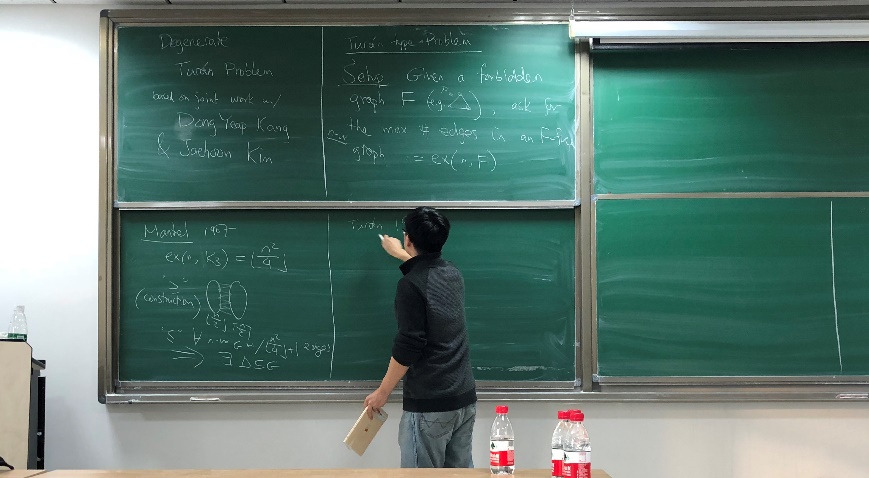 Degenerate
Turán Problem
based on joint work w/
Dong Yeap Kang
& Jaehoon Kim
Turán type Problem
Setup Given a forbidden
graph F (e.g. △), ask for
the max # edges in an F-free
n-vx
graph = ex(n, F)
Mantel 1907
ex(n, K₃) = ⌊n²/4⌋
"≥"
(construction)
"≤" ∀ n-vx G w/ ⌊n²/4⌋+1 edges
⟹ ∃ △ ⊆ G
Turán 19